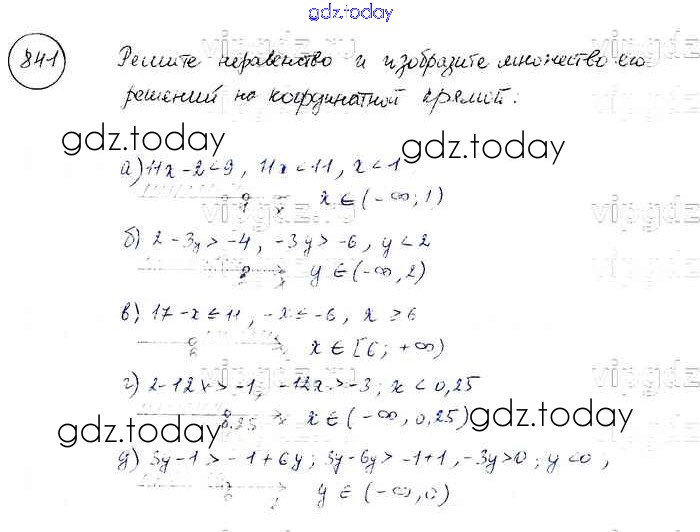 gdz.today
841
Решите неравенство и изобразите множество его
решений на координатной прямой.
gdz.today
gdz.today
а) 11x-2<9, 11x<11, x<1
1 x x∈(-∞; 1)
б) 2-3y>-4, -3y>-6, y<2
2 y∈(-∞, 2)
в) 17-x≤11, -x≤-6, x≥6
6 x∈[6; +∞)
г) 2-12x>-1, -12x>-3; x<0,25
0,25 x∈(-∞, 0,25)
gdz.today
gdz.today
д) 3y-1>-1+6y; 3y-6y>-1+1, -3y>0; y<0,
y∈(-∞, 0)
vipgdz.ru